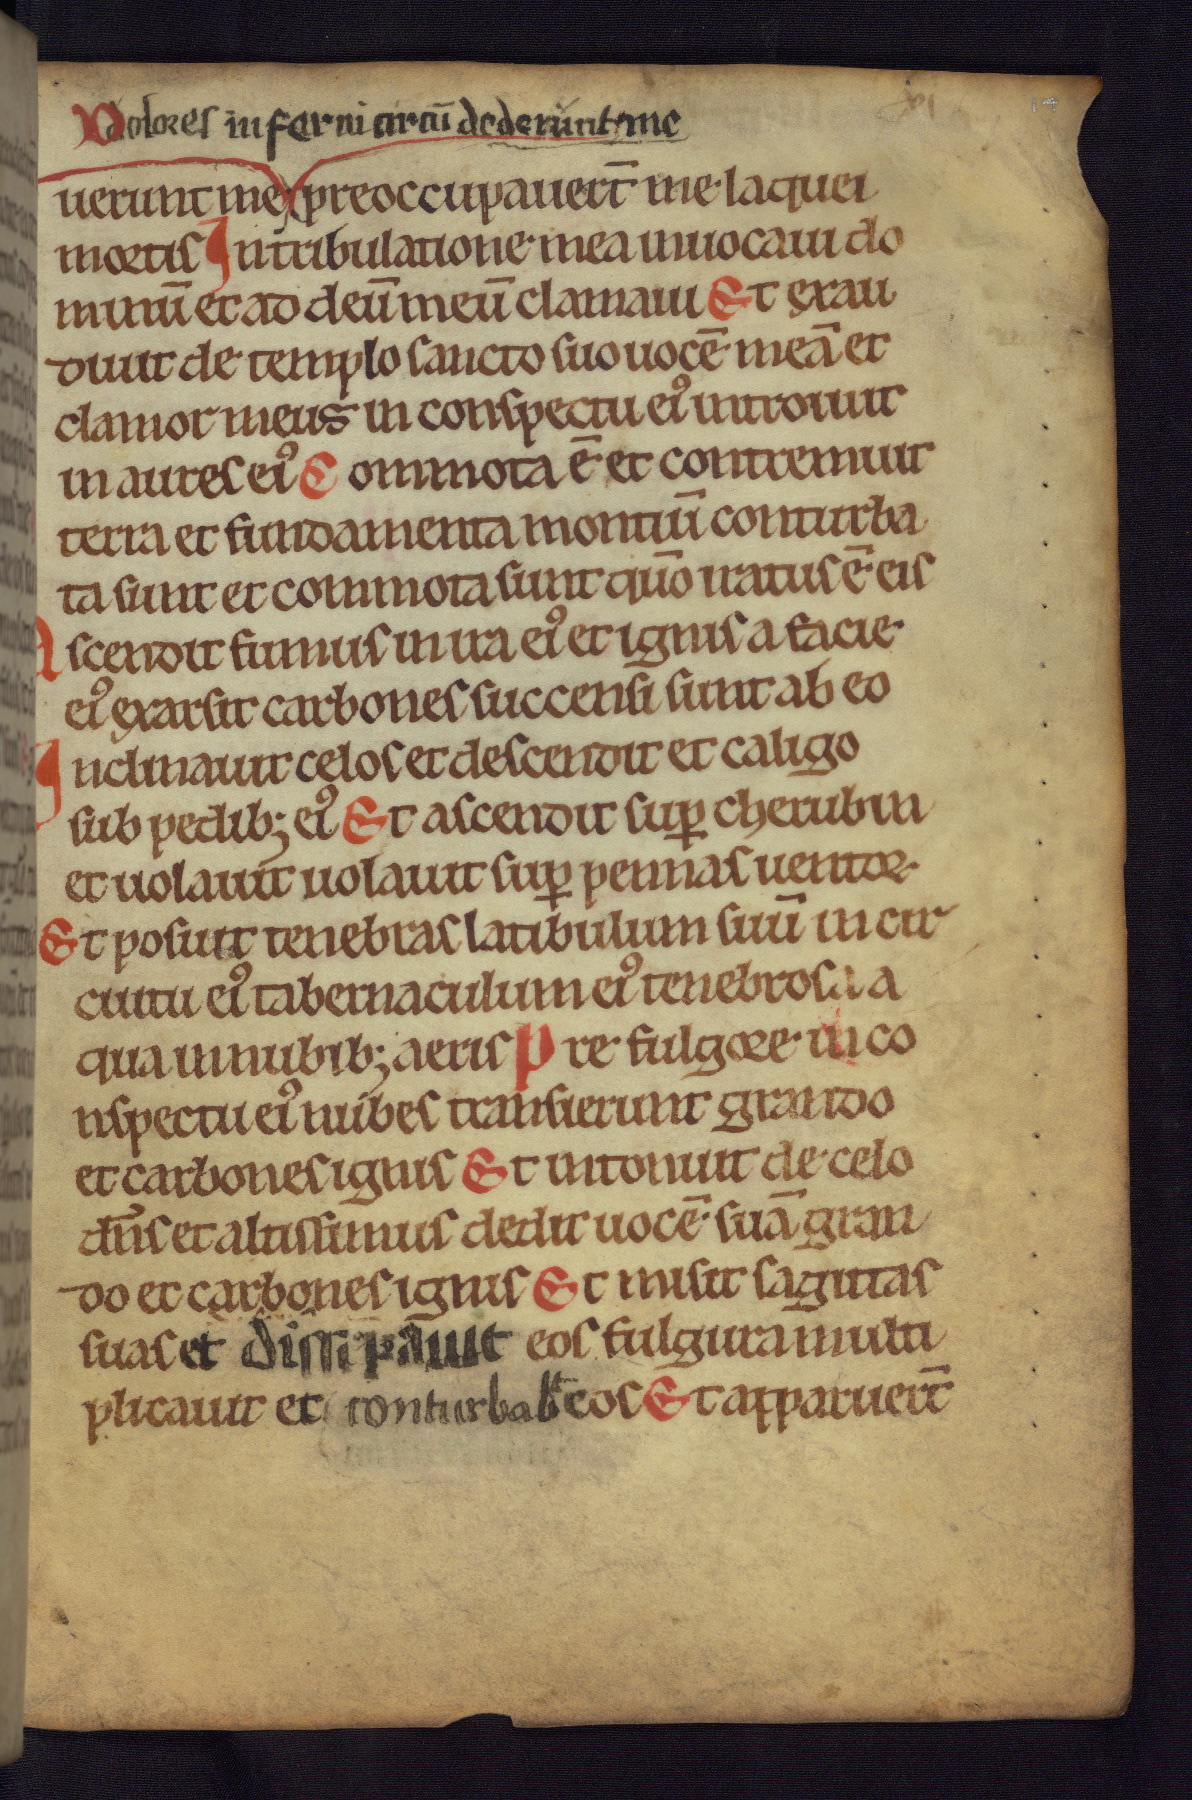 Dolores inferni circū dederunt me
uerunt me preoccupauert̄ me laquei
mortis In tribulatione mea inuocaui do
minū et ad deū meū clamaui Et exau
diuit de templo sancto suo uocē meā et
clamor meus in conspectu eiꝰ introiuit
in aures eiꝰ Commota ē et contremuit
terra et fundamenta montiū conturba
ta sunt et commota sunt qūo iratus ē eis
Ascendit fumus in ira eiꝰ et ignis a facie
eiꝰ exarsit carbones succensi sunt ab eo
Inclinauit celos et descendit et caligo
sub pedib; eiꝰ Et ascendit suꝑ cherubin
et uolauit uolauit suꝑ pennas uentoꝝ
Et posuit tenebras latibulum suū in cir
cuitu eiꝰ tabernaculum eiꝰ tenebrosa a
qua in nubib; aeris Pre fulgore in co
nspectu eiꝰ nubes transierunt grando
et carbones ignis Et intonuit de celo
dn̄s et altissimus dedit uocē suā gran
do et carbones ignis Et misit sagittas
suas et dissipauit eos fulgura multi
plicauit et conturbab̄ eos Et apparuert̄